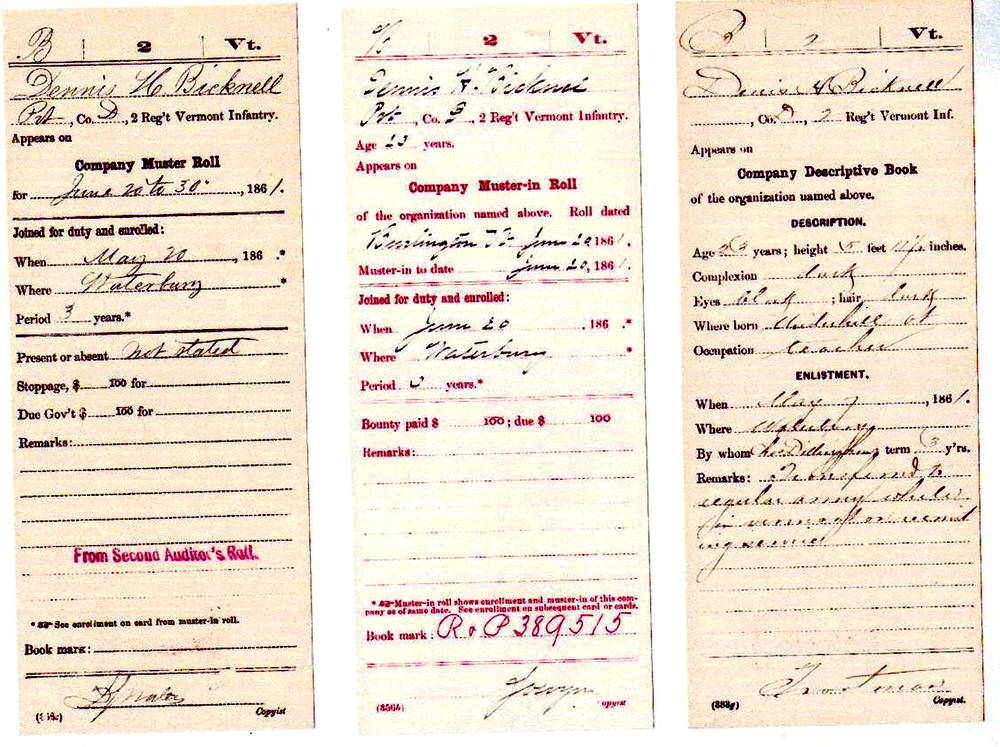 B | 2 | Vt.
Dennis H. Bicknell
Pvt, Co. D, 2 Reg't Vermont Infantry.
Appears on
Company Muster Roll
for June 20 to 30, 1861.
Joined for duty and enrolled:
When May 20, 186 .*
Where Waterbury *
Period 3 years.*
Present or absent Not stated
Stoppage, $ 100 for
Due Gov't $ 100 for
Remarks:
From Second Auditor's Roll.
* See enrollment on card from muster-in roll.
Book mark:
Copyist
B | 2 | Vt.
Dennis H. Bicknell
Pvt, Co. , 2 Reg't Vermont Infantry.
Age 23 years.
Appears on
Company Muster-in Roll
of the organization named above. Roll dated
Burlington Vt June 20, 1861.
Muster-in to date June 20, 1861.
Joined for duty and enrolled:
When June 20, 186 .*
Where Waterbury *
Period 3 years.*
Bounty paid $ 100; due $ 100
Remarks:
* Muster-in roll shows enrollment and muster-in of this company as of same date. See enrollment on subsequent card or cards.
Book mark: R & P 389515
(356b) Copyist
B | 2 | Vt.
Dennis H Bicknell
, Co. D, 2 Reg't Vermont Inf.
Appears on
Company Descriptive Book
of the organization named above.
DESCRIPTION.
Age 23 years; height 5 feet inches.
Complexion dark
Eyes ; hair dark
Where born Underhill Vt
Occupation teacher
ENLISTMENT.
When May 7, 1861.
Where Waterbury
By whom Dillingham; term 3 y'rs.
Remarks: Transferred to
regular army while
in Vermont on recruit
ing service
(383g) Copyist.